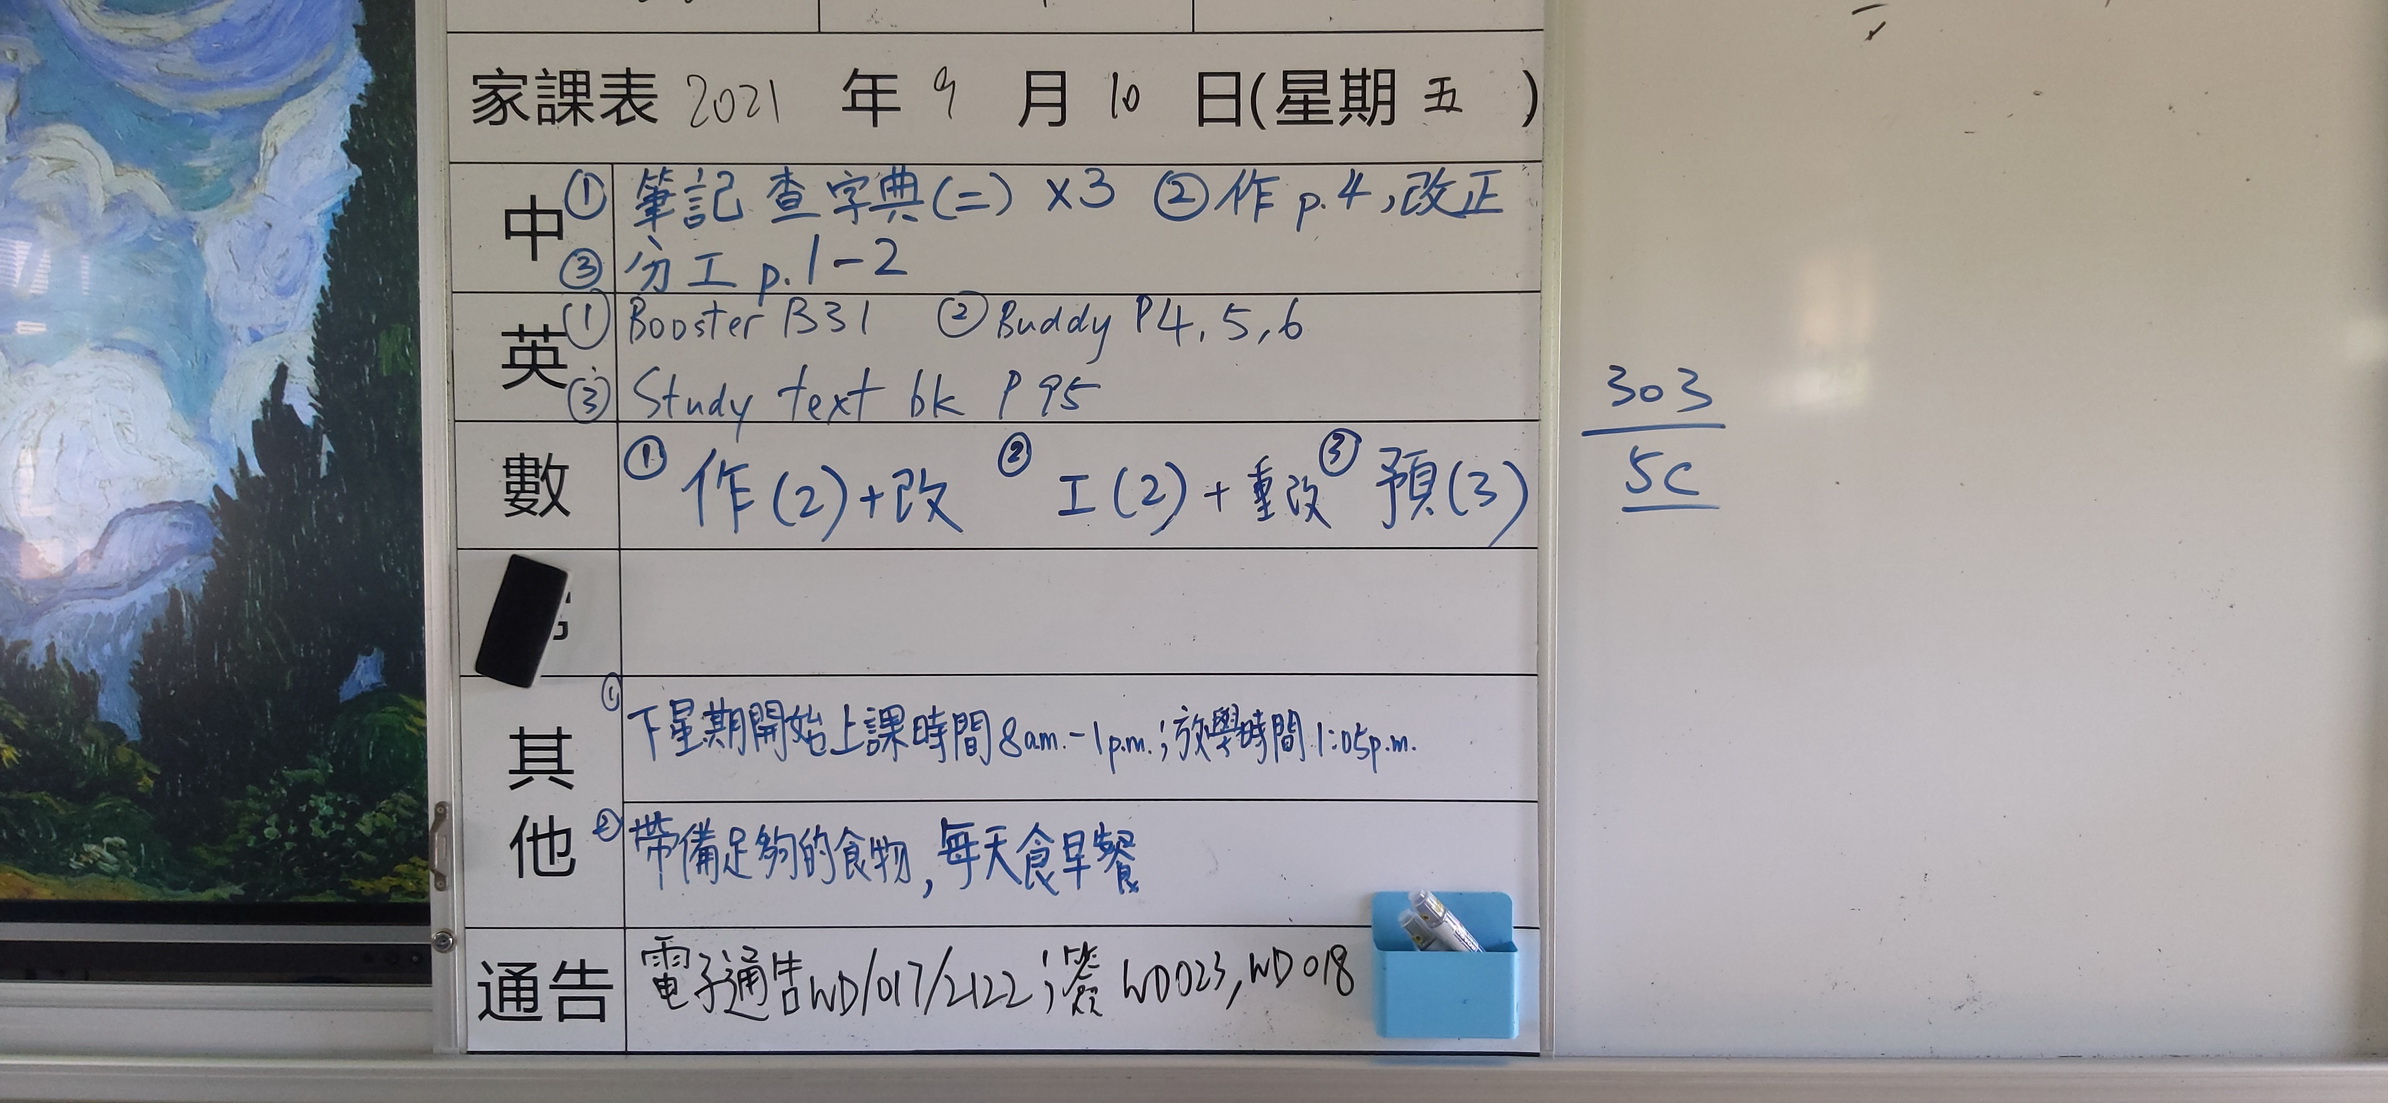 家課表 2021 年 9 月 10 日(星期 五 )
中 ① 筆記 查字典(二) ×3 ② 作 p.4,改正
③ 分工 p.1-2
英 ① Booster B31 ② Buddy P4, 5, 6
③ Study text bk P 95
數 ① 作(2)+改 ② 工(2)+重改 ③ 預(3)
其他 ① 下星期開始上課時間8am.-1p.m.;放學時間1:05p.m.
② 帶備足夠的食物,每天食早餐
通告 電子通告WD/017/2122;簽 WD023,WD018
303
5C